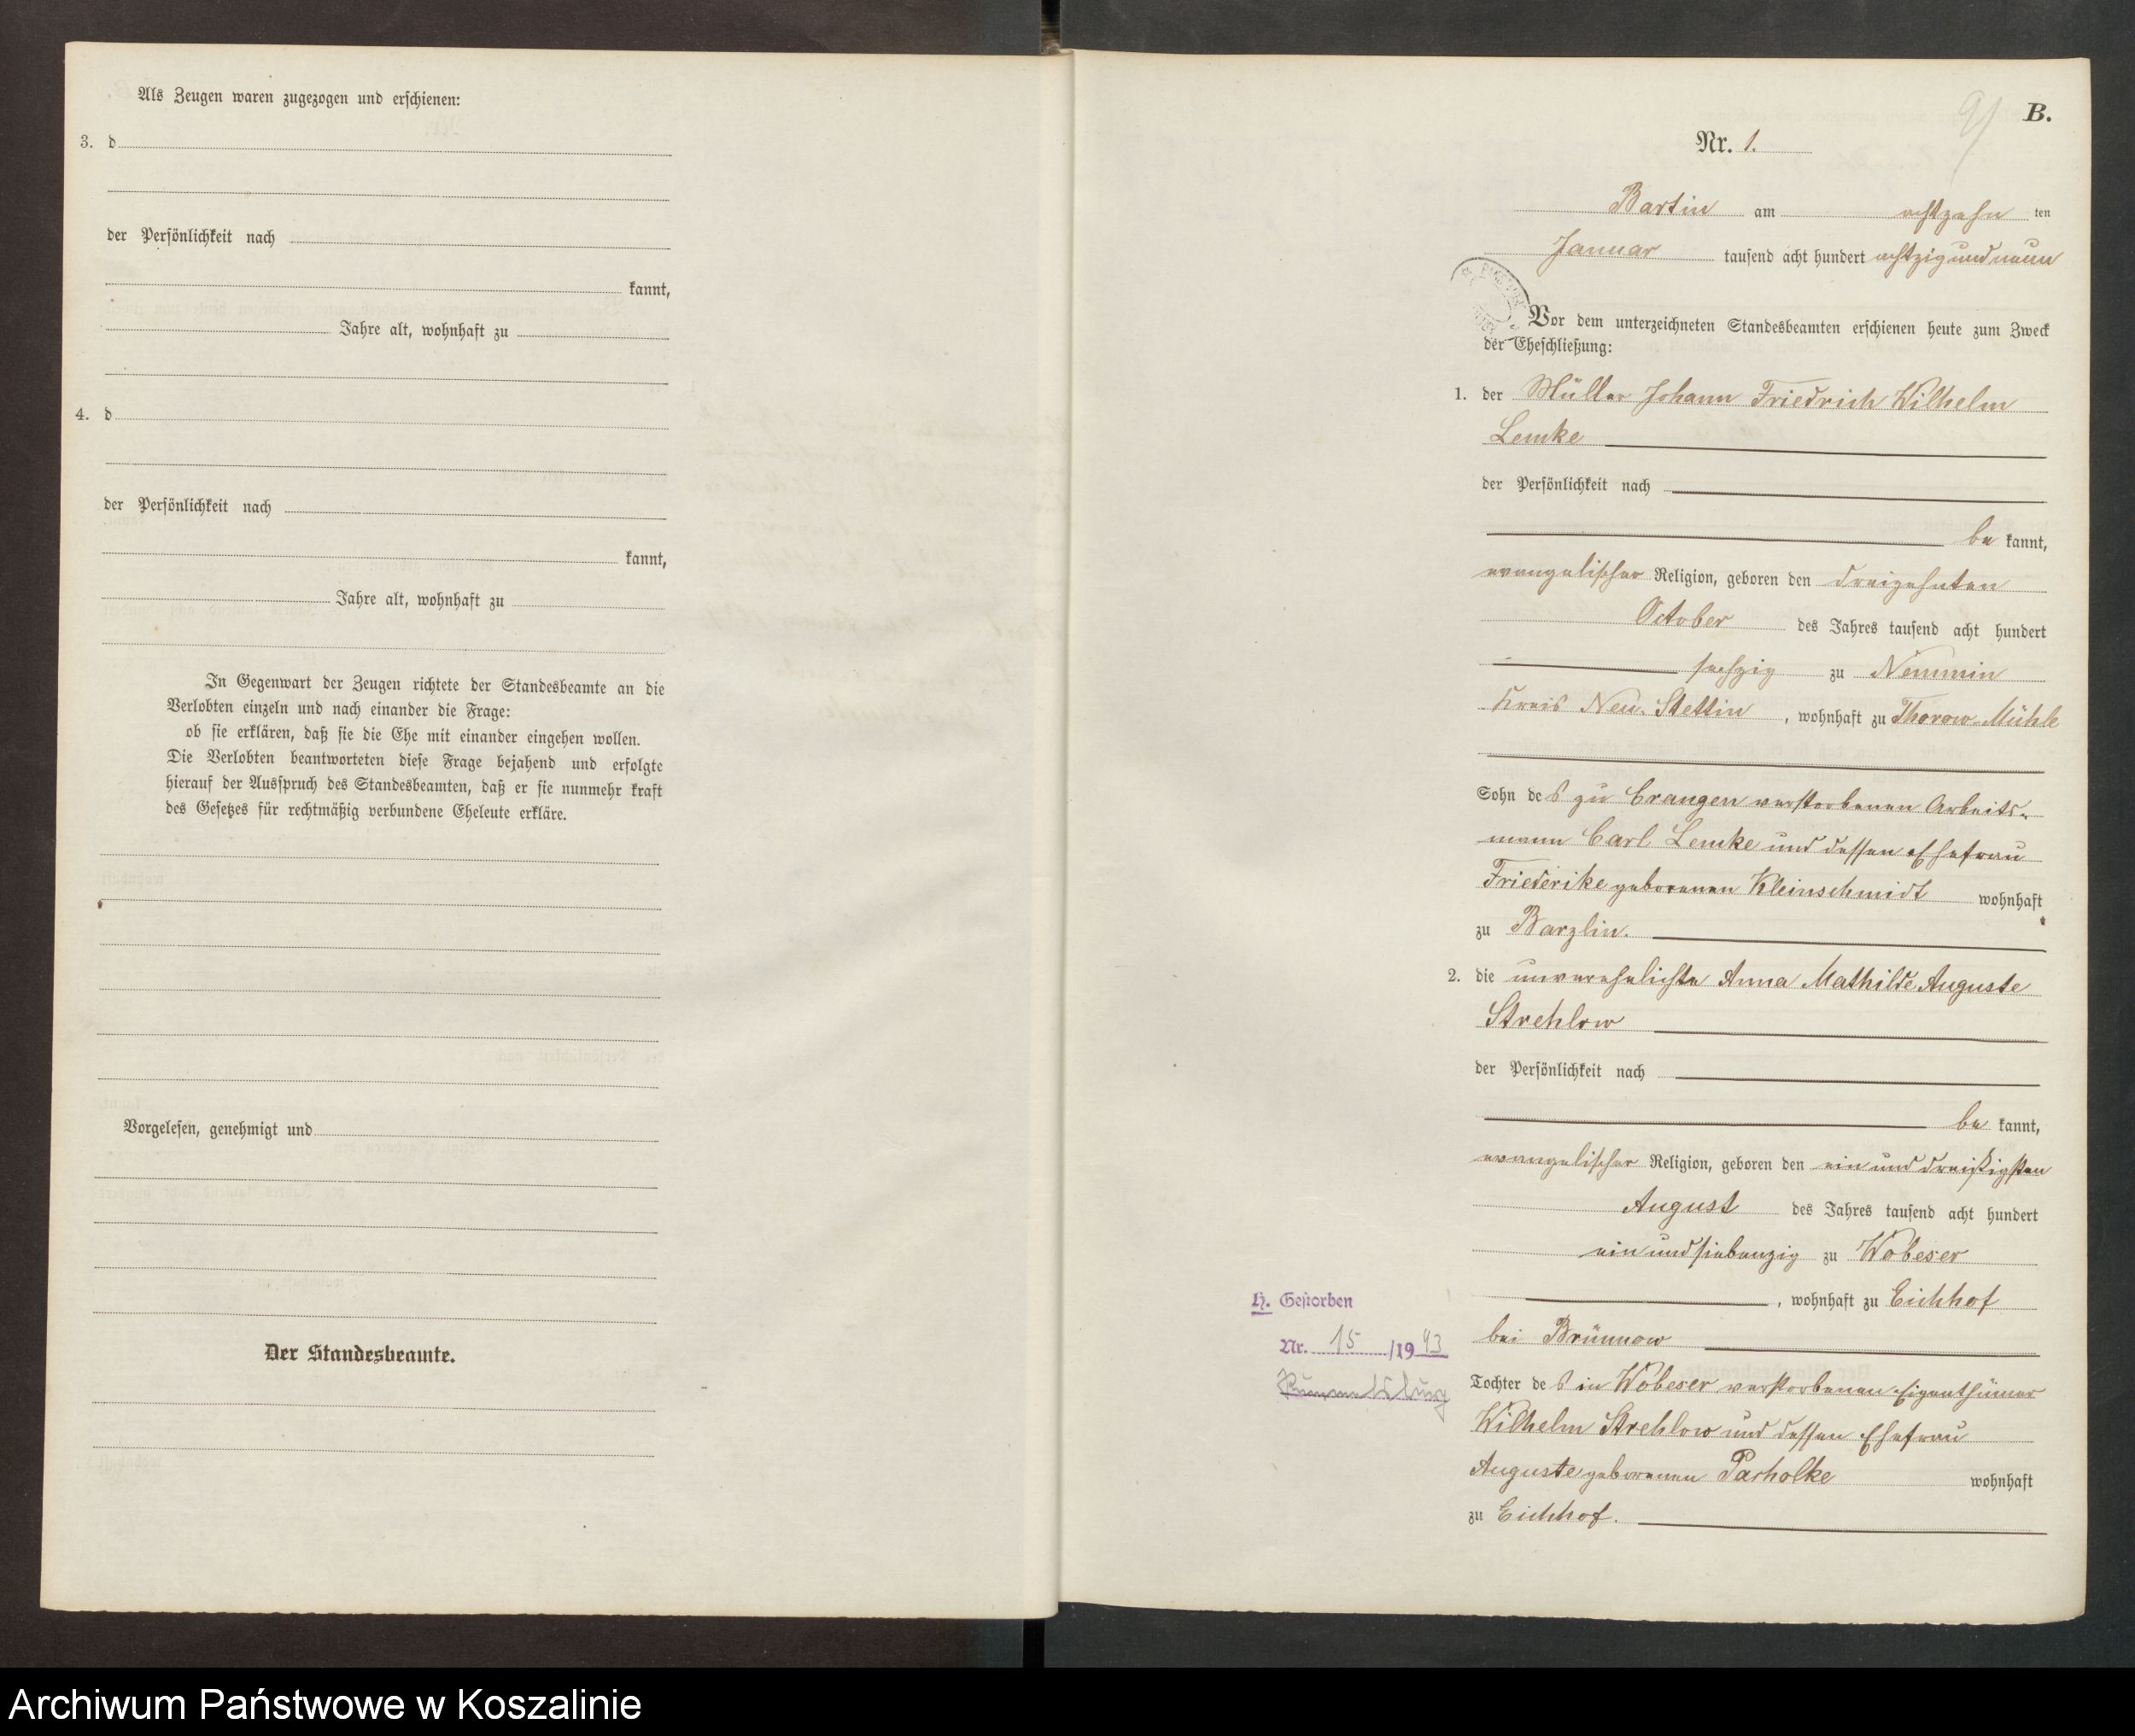 Als Zeugen waren zugezogen und erschienen:
3. d
der Persönlichkeit nach
kannt,
Jahre alt, wohnhaft zu
4. d
der Persönlichkeit nach
kannt,
Jahre alt, wohnhaft zu
In Gegenwart der Zeugen richtete der Standesbeamte an die
Verlobten einzeln und nach einander die Frage:
ob sie erklären, daß sie die Ehe mit einander eingehen wollen.
Die Verlobten beantworteten diese Frage bejahend und erfolgte
hierauf der Ausspruch des Standesbeamten, daß er sie nunmehr kraft
des Gesetzes für rechtmäßig verbundene Eheleute erkläre.
Vorgelesen, genehmigt und
Der Standesbeamte.
B.
Nr. 1.
Bartin am achtzehn ten
Januar tausend acht hundert achtzig und neun
Vor dem unterzeichneten Standesbeamten erschienen heute zum Zweck
der Eheschließung:
1. der Müller Johann Friedrich Wilhelm
Lemke
der Persönlichkeit nach
be kannt,
evangelischer Religion, geboren den dreizehnten
October des Jahres tausend acht hundert
sechzig zu Nemmin
Kreis Neu-Stettin, wohnhaft zu Thorow-Mühle
Sohn des zu Crangen verstorbenen Arbeits-
mann Carl Lemke und dessen Ehefrau
Friederike geborenen Kleinschmidt wohnhaft
zu Barzlin.
2. die unverehelichte Anna Mathilde Auguste
Strehlow
der Persönlichkeit nach
be kannt,
evangelischer Religion, geboren den ein und dreißigsten
August des Jahres tausend acht hundert
ein und siebenzig zu Wobeser
, wohnhaft zu Eichhof
bei Brünnow
Tochter des in Wobeser verstorbenen Eigenthümer
Wilhelm Strehlow und dessen Ehefrau
Auguste geborenen Pasholke wohnhaft
zu Eichhof.
H. Gestorben
Nr. 15 /1943
Rummelsburg
Archiwum Państwowe w Koszalinie